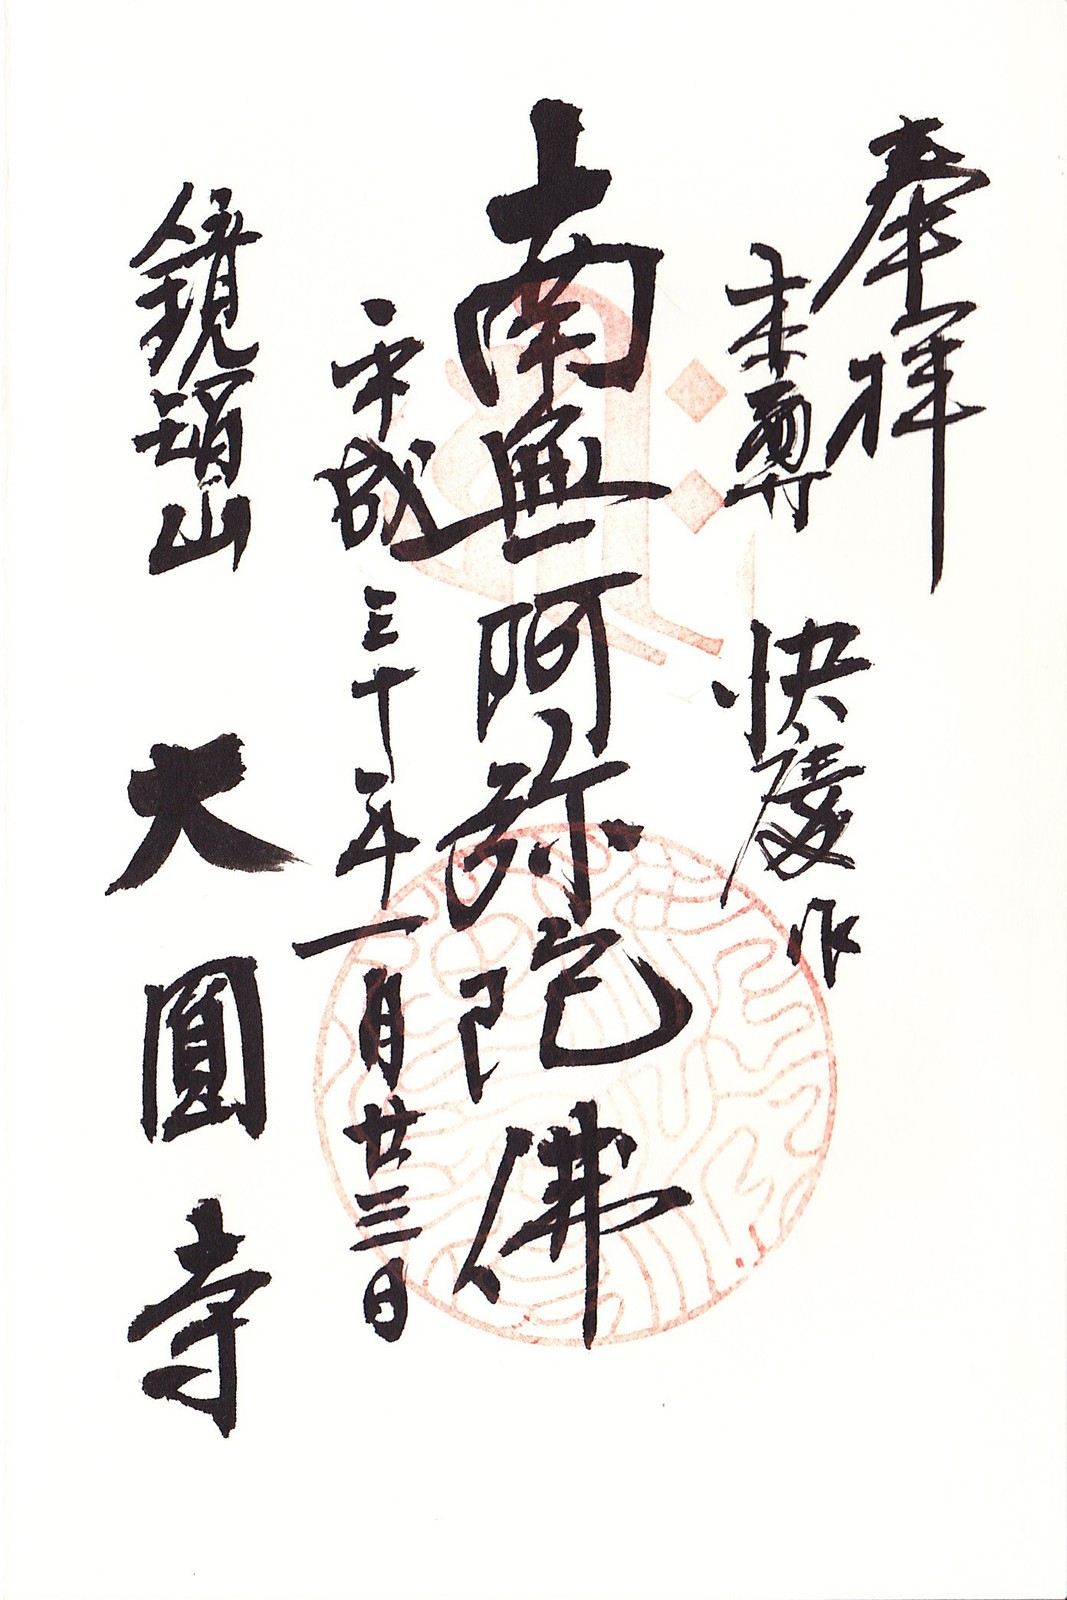 奉拝
本尊 快慶作
南無阿弥陀佛
平成三十年一月廿三日
鏡智山 大圓寺